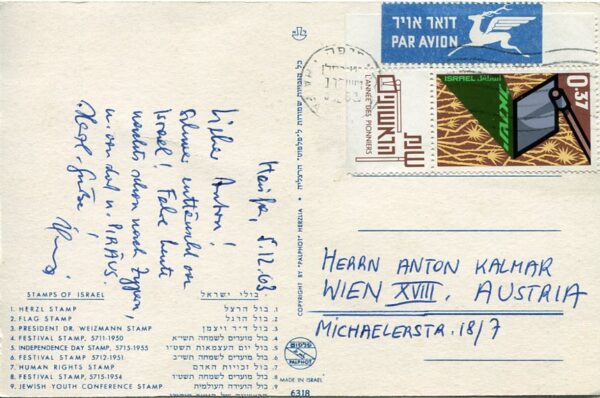 דואר אויר
PAR AVION
ISRAEL
0.37
L'ANNÉE DES PIONNIERS
Haifa, 5.12.63
Lieber Anton!
Israel! Fahre heute
nachts schon nach Zypern,
u. von dort n. PIRÄUS.
HERRN ANTON KALMAR
WIEN XVIII, AUSTRIA
MICHAELERSTR. 18/7
STAMPS OF ISRAEL בולי ישראל
1. HERZL STAMP בול הרצל .1
2. FLAG STAMP בול הדגל .2
3. PRESIDENT DR. WEIZMANN STAMP בול ד״ר ויצמן .3
4. FESTIVAL STAMP, 5711-1950 בול מועדים לשמחה תשי״א .4
5. INDEPENDENCE DAY STAMP, 5715-1955 בול יום העצמאות תשט״ו .5
6. FESTIVAL STAMP, 5712-1951 בול מועדים לשמחה תשי״ב .6
7. HUMAN RIGHTS STAMP בול זכויות האדם .7
8. FESTIVAL STAMP, 5715-1954 בול מועדים לשמחה תשט״ו .8
9. JEWISH YOUTH CONFERENCE STAMP .9
COPYRIGHT BY "PALPHOT" HERZLIA
פלפוט
PALPHOT
MADE IN ISRAEL
6318